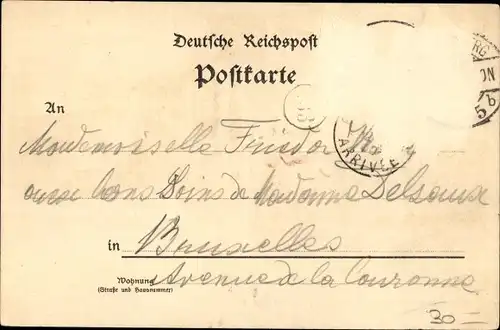 Deutsche Reichspost
Postkarte
An
Mademoiselle
aux bons Soins de Madame Delsaux
in Bruxelles
Wohnung
(Straße und Hausnummer)
Avenue de la Couronne
RG
ON
5b
ARRIVÉE
30 —